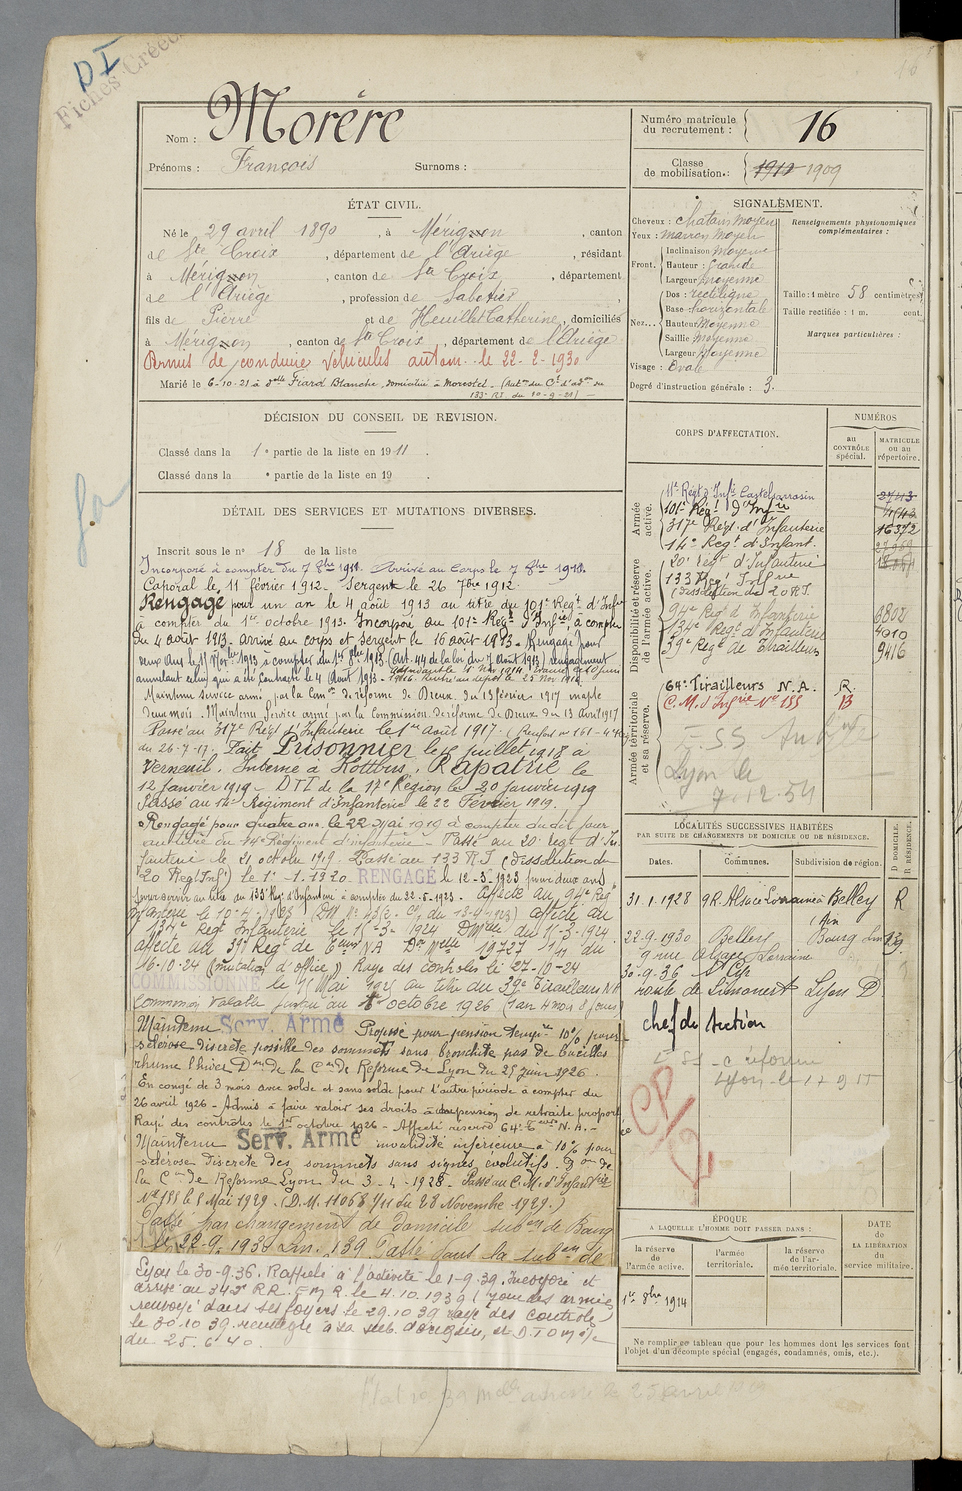 D I
Fiches Créées
Nom : Morère
Prénoms : François Surnoms :
Numéro matricule du recrutement : 16
Classe de mobilisation : 1910 1909
ÉTAT CIVIL.
Né le 29 avril 1890, à Mérignon, canton
de Ste Croix, département de l'Ariège, résidant
à Mérignon, canton de Ste Croix, département
de l'Ariège, profession de Sabotier,
fils de Pierre et de Heuillet Catherine, domiciliés
à Mérignon, canton de Ste Croix, département de l'Ariège
Permis de conduire véhicules autom. le 22-2-1930
Marié le 6-10-21 à delle Frard Blanche, domiciliée à Morestel. (Auton du Cl d'adon du
133e RI du 10-9-21) —
SIGNALEMENT.
Cheveux : chatain moyen
Yeux : marron moyen
Front. Inclinaison Moyenne
Hauteur : Grande
Largeur moyenne
Nez... Dos : rectiligne
Base horizontale
Hauteur Moyenne
Saillie Moyenne
Largeur Moyenne
Visage : Ovale
Renseignements physionomiques complémentaires :
Taille : 1 mètre 58 centimètres
Taille rectifiée : 1 m. cent.
Marques particulières :
Degré d'instruction générale : 3.
DÉCISION DU CONSEIL DE REVISION.
Classé dans la 1e partie de la liste en 1911.
Classé dans la e partie de la liste en 19 .
DÉTAIL DES SERVICES ET MUTATIONS DIVERSES.
Inscrit sous le n° 18 de la liste
Incorporé à compter du 7 8bre 1911. Arrivé au Corps le 7 8bre 1911.
Caporal le 11 février 1912. Sergent le 26 7bre 1912.
Rengagé pour un an le 4 août 1913 au titre du 101e Regt d'Infie
à compter du 1er octobre 1913. Incorporé au 101e Regt d'Infie, à compter
du 4 août 1913. Arrivé au corps et Sergent le 16 août 1913. Rengagé pour
deux ans le 1er Nov. 1913 à compter du 1er 8bre 1913. (Art. 44 de la loi du 7 Août 1913) rengagement
annulant celui qui a été contracté le 4 Août 1913.
Maintenu service armé par la Comon de réforme de Dreux du 13 février 1917 inapte
deux mois. Maintenu Service armé par la Commission de réforme de Dreux du 13 avril 1917
Passé au 317e Régt d'Infanterie le 1er Août 1917.
du 26-7-17. Fait Prisonnier le 15 juillet 1918 à
Verneuil. Interné à Kottbus. Rapatrié le
12 janvier 1919 — DTI de la 17e Région le 20 janvier 1919
Passé au 14e Régiment d'Infanterie le 22 Février 1919.
Rengagé pour quatre ans le 22 Mai 1919 à compter du dit jour
au titre du 14e Régiment d'Infanterie. Passé au 20e regt d'In
fanterie le 21 octobre 1919. Passé au 133 R I (dissolution du
20 Regt Inf) le 1er - 1. 1920. RENGAGÉ le 12-3-1923 pour deux ans
pour servir au titre du 133e Regt d'Infanterie à compter du 22-5-1923. Affecté au 94e Regt
d'Infanterie le 10-4-1923 affecté au
134e Regt Infanterie le 15-3-1924 DMelle du 15-3-1924
affecté au 39e Regt de Teurs NA Don Melle 19727 1/11 du
16-10-24 (mutation d'office) Rayé des controles le 27-10-24
COMMISSIONNÉ le 15 Mai 1925 au titre du 39e Tirailleurs NA
Commission valable jusqu'au 1er octobre 1926 (1 an 4 mois 8 jours)
Maintenu Serv. Armé Proposé pour pension tempre 10% pour
sclérose discrète possible des sommets sans bronchite pas de bacilles
rhume l'hiver Don de la Con de Réforme de Lyon du 25 juin 1926.
En congé de 3 mois avec solde et sans solde pour l'autre période à compter du
26 avril 1926 - Admis à faire valoir ses droits à une pension de retraite proport
Rayé des contrôles le 1er octobre 1926 - Affecté réserve 64e Teurs N.A. -
Maintenu Serv. Armé invalidité inférieure à 10% pour
sclérose discrète des sommets sans signes évolutifs. Don de
la Con de Réforme Lyon du 3-4-1928. Passé au C.M. d'Infanterie
N° 155 le 8 Mai 1929. (D.M. 11068 1/11 du 28 Novembre 1929.)
Passé par changement de domicile subon de Bourg
le 22-9-1930 Lin. 139 Passé dans la subon de
Lyon le 30-9-36. Rappelé à l'activité le 1-9-39. Incorporé et
arrivé au 343e RR. le 4.10.1939
renvoyé dans ses foyers le 29.10.39 rayé des contrôles
le 30.10.39.
du 25.6.40.
CORPS D'AFFECTATION.
NUMÉROS
au CONTRÔLE spécial.
MATRICULE ou au répertoire.
Armée active.
11e Régt d'Infie Castelsarrasin 2713
101e Régt d'Infie
317e Régt d'Infanterie 16372
14e Regt d'Infant.
Disponibilité et réserve de l'armée active.
20e régt d'Infanterie
133 Regt Infrie
(dissolution du 20 R.I.
94e Regt d'Infanterie 8802
134e Regt d'Infanterie 4010
39e Regt de Tirailleurs 9416
Armée térritoriale et sa réserve.
64e Tirailleurs N.A. R.
C.M. d'Infrie N° 155 B
Lyon le
7.12.54
LOCALITÉS SUCCESSIVES HABITÉES
PAR SUITE DE CHANGEMENTS DE DOMICILE OU DE RÉSIDENCE.
Dates. Communes. Subdivision de région. D DOMICILE. R RÉSIDENCE.
31.1.1928 9 R. Alsace Lorraine à Belley R
Ain
22-9.1930 Belley Bourg Lin 139
9 rue Alsace Lorraine
30-9.36 St Cyr
route de Limonest Lyon D
chef de section
CP
ÉPOQUE
A LAQUELLE L'HOMME DOIT PASSER DANS :
la réserve de l'armée active.
l'armée territoriale.
la réserve de l'armée territoriale.
DATE DE LA LIBÉRATION du service militaire.
1er 8bre 1914
Ne remplir ce tableau que pour les hommes dont les services font
l'objet d'un décompte spécial (engagés, condamnés, omis, etc.).